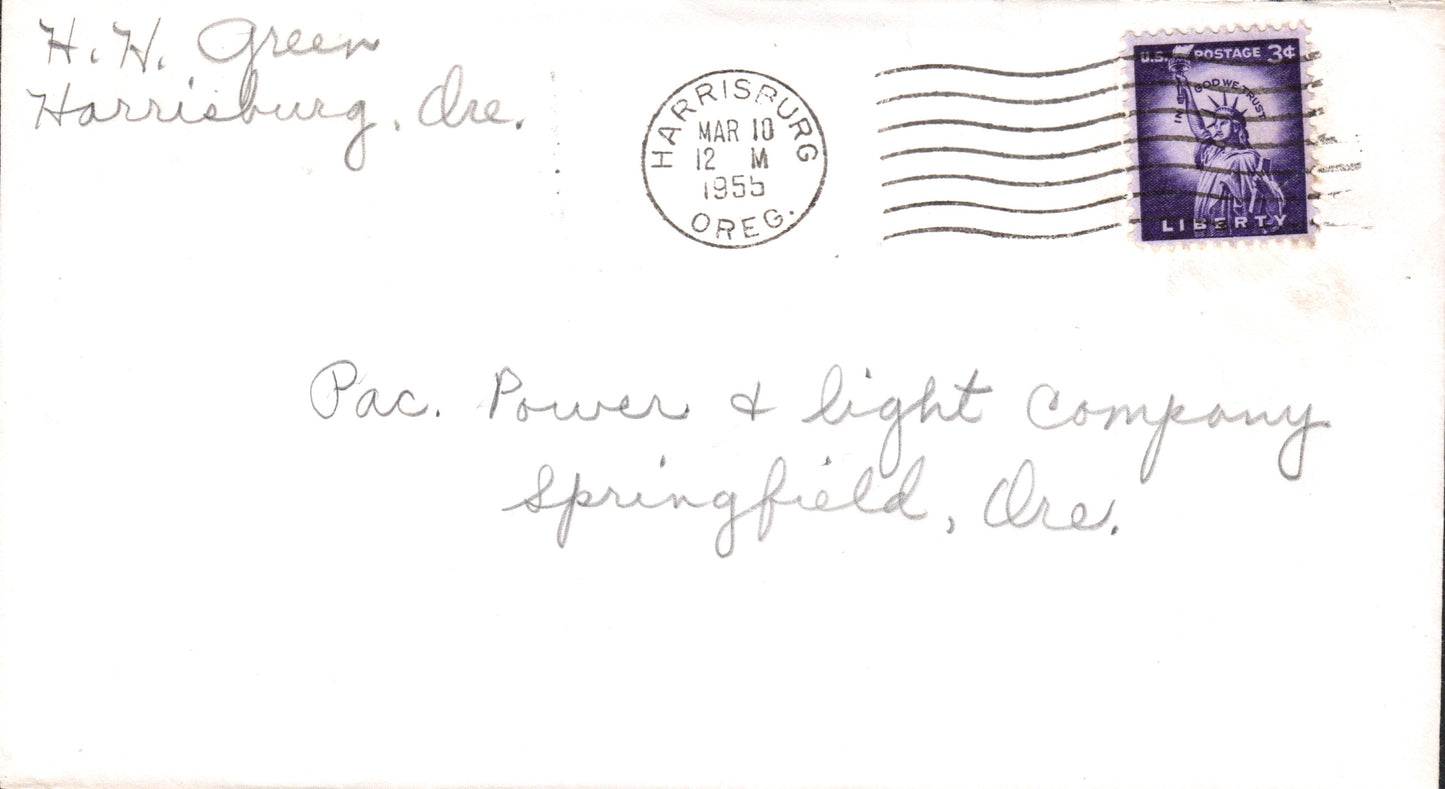 H. H. Green
Harrisburg, Ore.
HARRISBURG
MAR 10
12 M
1955
OREG.
U.S. POSTAGE 3¢
IN GOD WE TRUST
LIBERTY
Pac. Power & Light Company
Springfield, Ore.